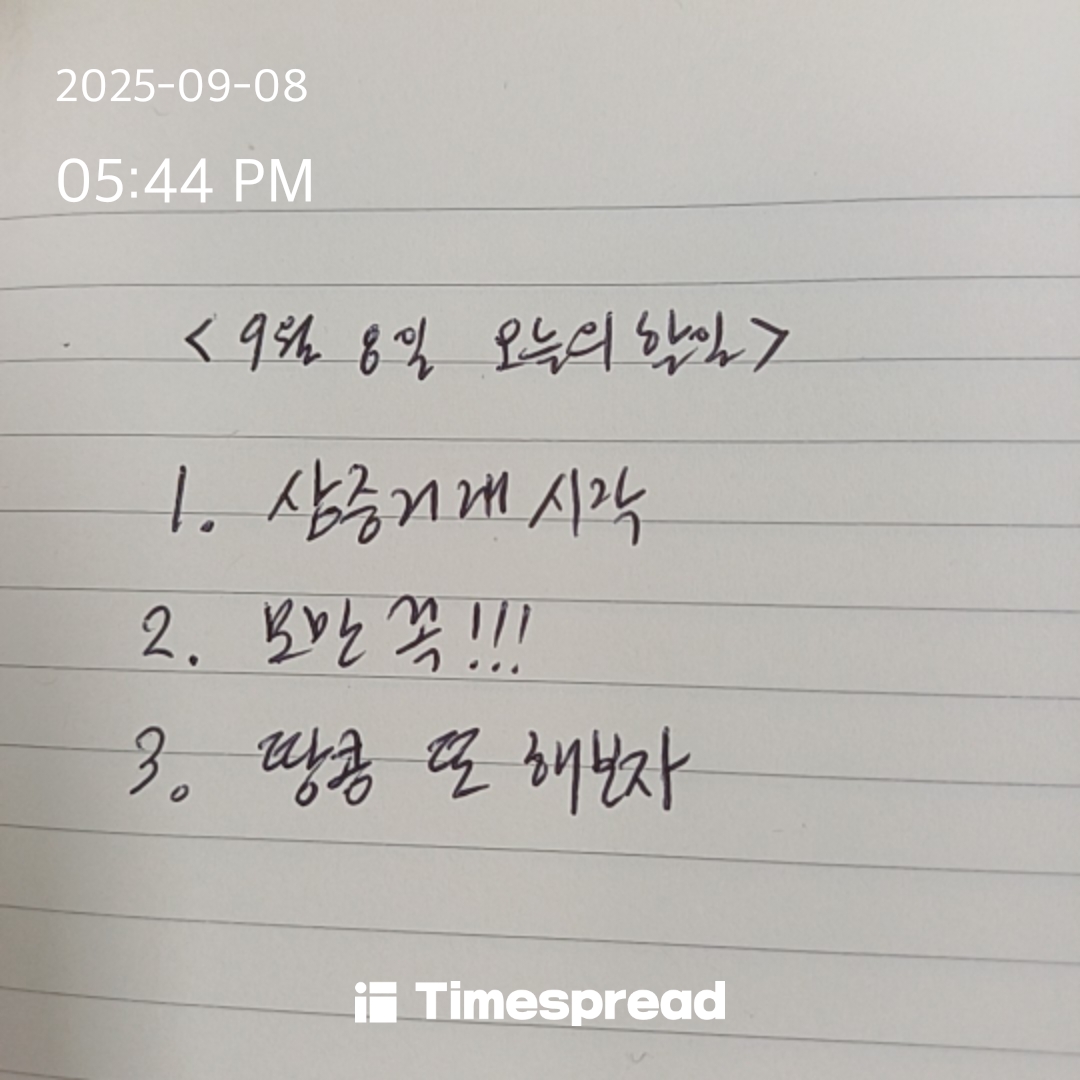 2025-09-08
05:44 PM
< 9월 8일 오늘의 할일 >
1. 삼증거래 시작
2. 모만 꼭!!!
3. 땅콩 또 해보자
Timespread